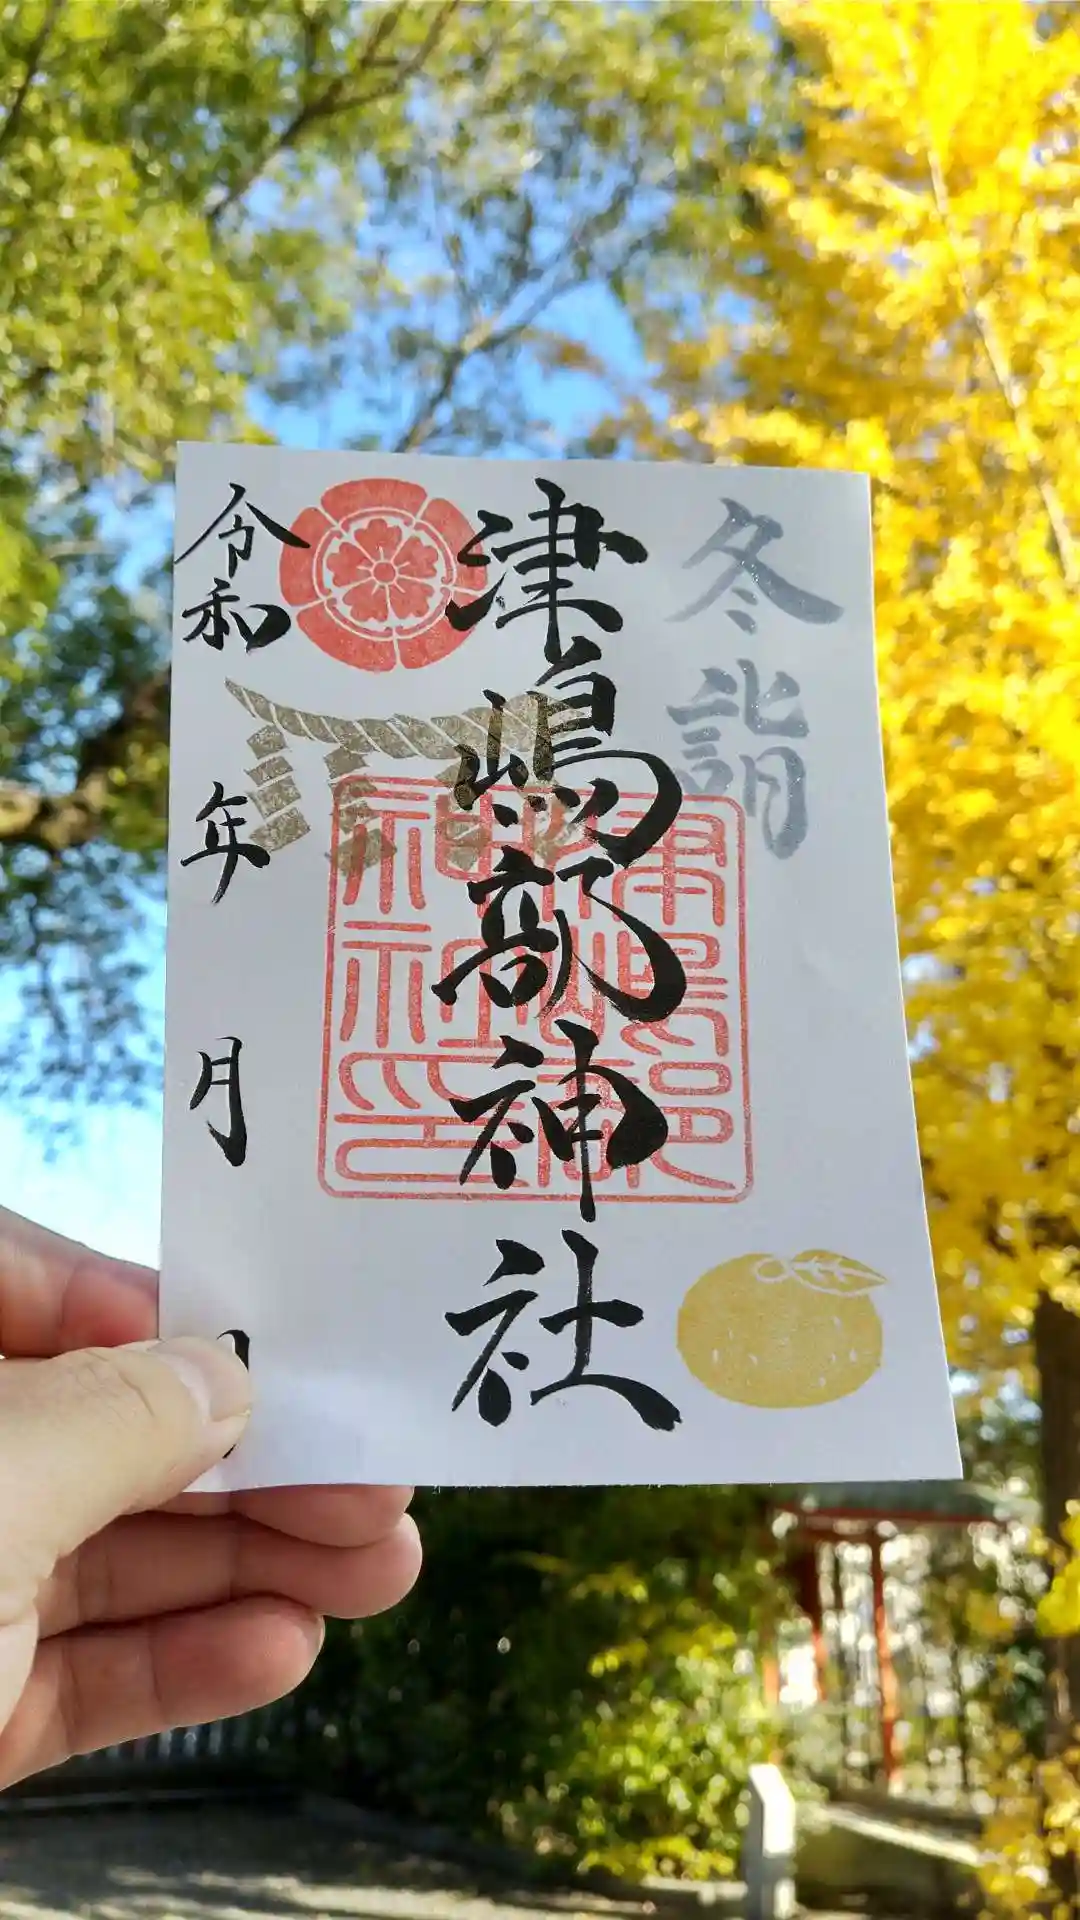 冬詣
津嶋部神社
令和 年 月 日
津嶋部神社印